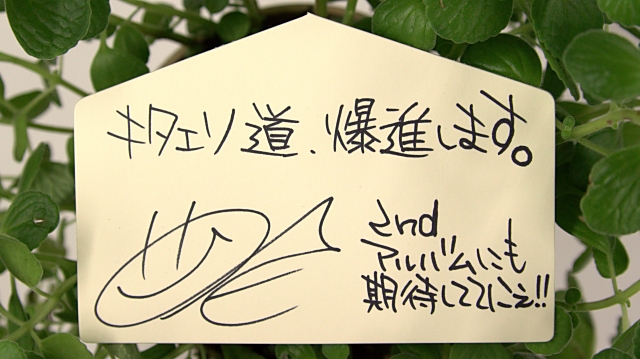 キタエリ道、爆進します。
2nd
アルバムにも
期待しててにえ!!